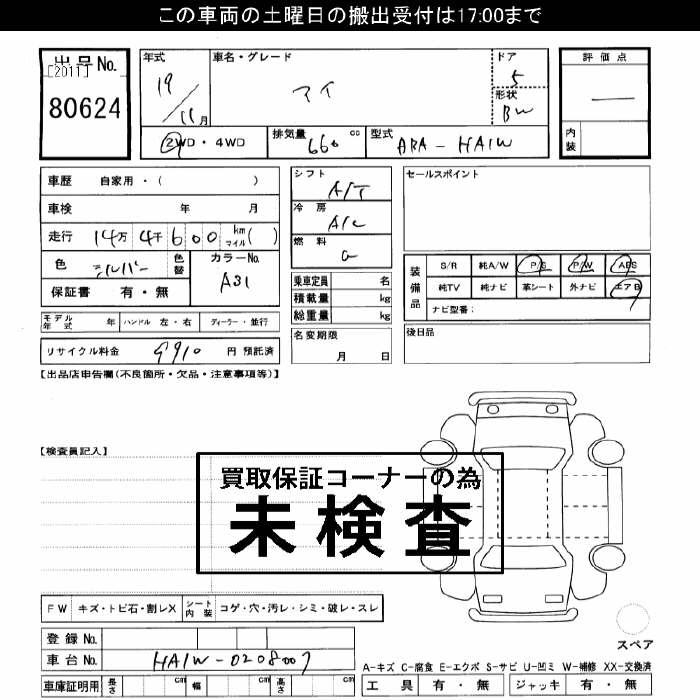 この車両の土曜日の搬出受付は17:00まで
出品No.
[2011]
80624
年式
19
11月
車名・グレード
アイ
ドア
5
形状
BW
評価点
—
内装
②WD・4WD
排気量 660 cc
型式 ABA-HA1W
車歴 自家用・( )
車検 年 月
走行 14万4千600 km マイル( )
色 シルバー
色替
カラーNo. A31
保証書 有・無
シフト A/T
冷房 A/C
燃料 G
乗車定員 名
積載量 kg
総重量 kg
名変期限
月 日
セールスポイント
装備品
S/R 純A/W P/S P/W ABS
純TV 純ナビ 革シート 外ナビ エアB
ナビ型番:
後日品
モデル年式 年 ハンドル 左・右 ディーラー・並行
リサイクル料金 9910 円 預託済
【出品店申告欄(不良箇所・欠品・注意事項等)】
【検査員記入】
買取保証コーナーの為
未検査
FW キズ・トビ石・割レX シート内装 コゲ・穴・汚レ・シミ・破レ・スレ
スペア
登録No.
車台No. HA1W-0208007
A-キズ C-腐食 E-エクボ S-サビ U-凹ミ W-補修 XX-交換済
車庫証明用 長さ cm 幅 cm 高さ cm
工具 有・無 ジャッキ 有・無